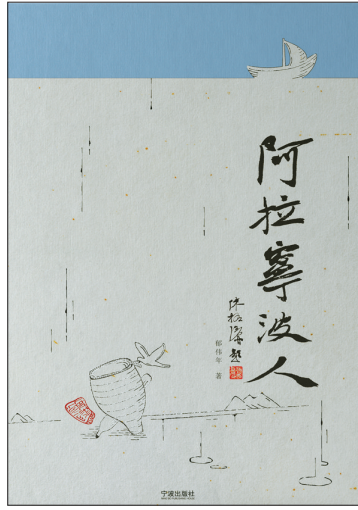 阿拉寧波人
郁伟年 著
宁波出版社